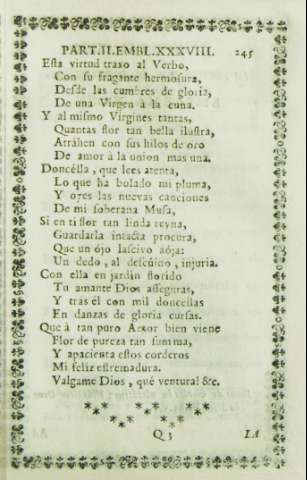 PART.II.EMBL.XXXVIII. 245
Esta virtud traxo al Verbo,
Con su fragante hermosura,
Desde las cumbres de gloria,
De una Virgen à la cuna.
Y al mismo Virgines tantas,
Quantas flor tan bella ilustra,
Atrahen con sus hilos de oro
De amor à la union mas una.
Doncélla, que lees atenta,
Lo que ha bolado mi pluma,
Y oyes las nuevas canciones
De mi soberana Musa,
Si en ti flor tan linda reyna,
Guardarla intacta procura,
Que un ójo lascivo aója:
Un dedo, al descúido, injuria.
Con ella en jardin florido
Tu amante Dios asseguras,
Y trás él con mil doncellas
En danzas de gloria cursas.
Que à tan puro Amor bien viene
Flor de pureza tan summa,
Y apacienta estos corderos
Mi feliz estremadura.
Valgame Dios, qué ventura! &c.
Q 3 LA